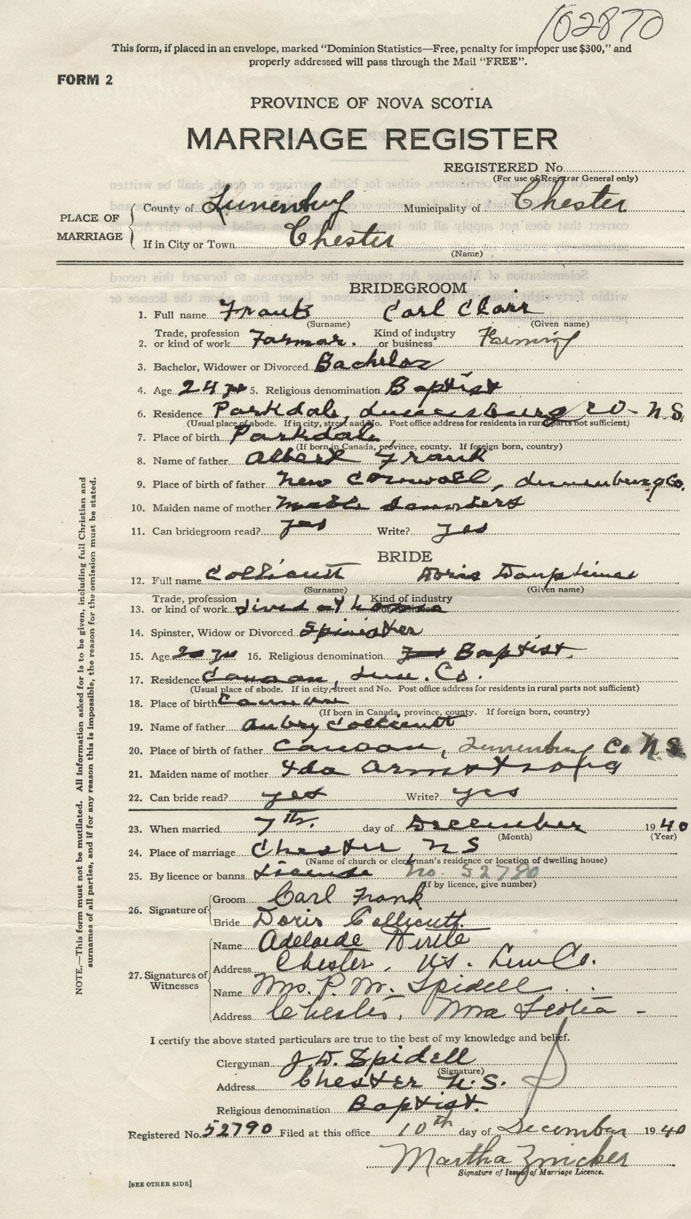 102870
This form, if placed in an envelope, marked "Dominion Statistics—Free, penalty for improper use $300," and
properly addressed will pass through the Mail "FREE".
FORM 2
PROVINCE OF NOVA SCOTIA
MARRIAGE REGISTER
REGISTERED No.
(For use of Registrar General only)
PLACE OF MARRIAGE
County of Lunenburg Municipality of Chester
If in City or Town Chester
(Name)
BRIDEGROOM
1. Full name Frank Carl Clair
(Surname) (Given name)
2. Trade, profession or kind of work Farmar. Kind of industry or business Farming
3. Bachelor, Widower or Divorced Bachelor
4. Age 24 yr 5. Religious denomination Baptist
6. Residence Parkdale, Lunenburg Co- N.S.
(Usual place of abode. If in city, street and No. Post office address for residents in rural parts not sufficient)
7. Place of birth Parkdale
(If born in Canada, province, county. If foreign born, country)
8. Name of father Albert Frank
9. Place of birth of father New Cornwall, Lunenburg Co.
10. Maiden name of mother Mable Saunders
11. Can bridegroom read? yes Write? yes
BRIDE
12. Full name Collicutt Doris
(Surname) (Given name)
13. Trade, profession or kind of work lived at home Kind of industry
14. Spinster, Widow or Divorced Spinster
15. Age 16. Religious denomination Baptist.
17. Residence Canaan, Lun. Co.
(Usual place of abode. If in city, street and No. Post office address for residents in rural parts not sufficient)
18. Place of birth Canaan
(If born in Canada, province, county. If foreign born, country)
19. Name of father Aubry Collicutt
20. Place of birth of father Canaan, Lunenburg Co N.S
21. Maiden name of mother Ida Armstrong
22. Can bride read? yes Write? yes
23. When married 7th. day of December 1940
(Month) (Year)
24. Place of marriage Chester, NS
(Name of church or clergyman's residence or location of dwelling house)
25. By licence or banns License No. 52790
(If by licence, give number)
26. Signature of
Groom Carl Frank
Bride Doris Collicutt.
27. Signatures of Witnesses
Name Adelaide Hirtle
Address Chester, N.S. Lun Co.
Name Mrs. P. W. Spidell
Address Chester, Nova Scotia -
I certify the above stated particulars are true to the best of my knowledge and belief.
Clergyman J. D. Spidell
(Signature)
Address Chester N.S.
Religious denomination Baptist.
Registered No. 52790 Filed at this office 10th day of December 1940
Martha Zwicker
Signature of Issuer of Marriage Licence.
[SEE OTHER SIDE]
NOTE.—This form must not be mutilated. All Information asked for is to be given, including full Christian and
surnames of all parties, and if for any reason this is impossible, the reason for the omission must be stated.